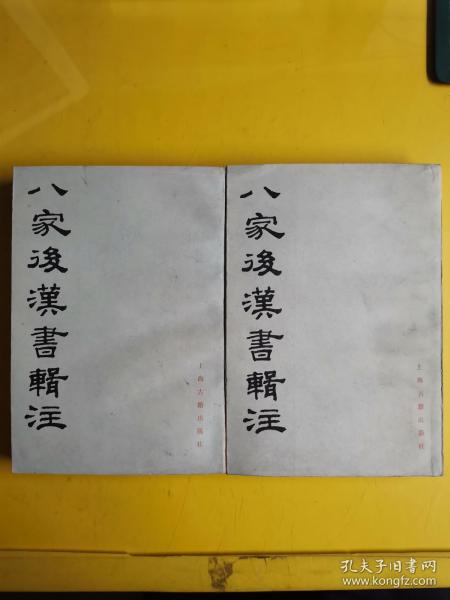 八家後漢書輯注
上海古籍出版社
八家後漢書輯注
上海古籍出版社
孔夫子旧书网
www.kongfz.com